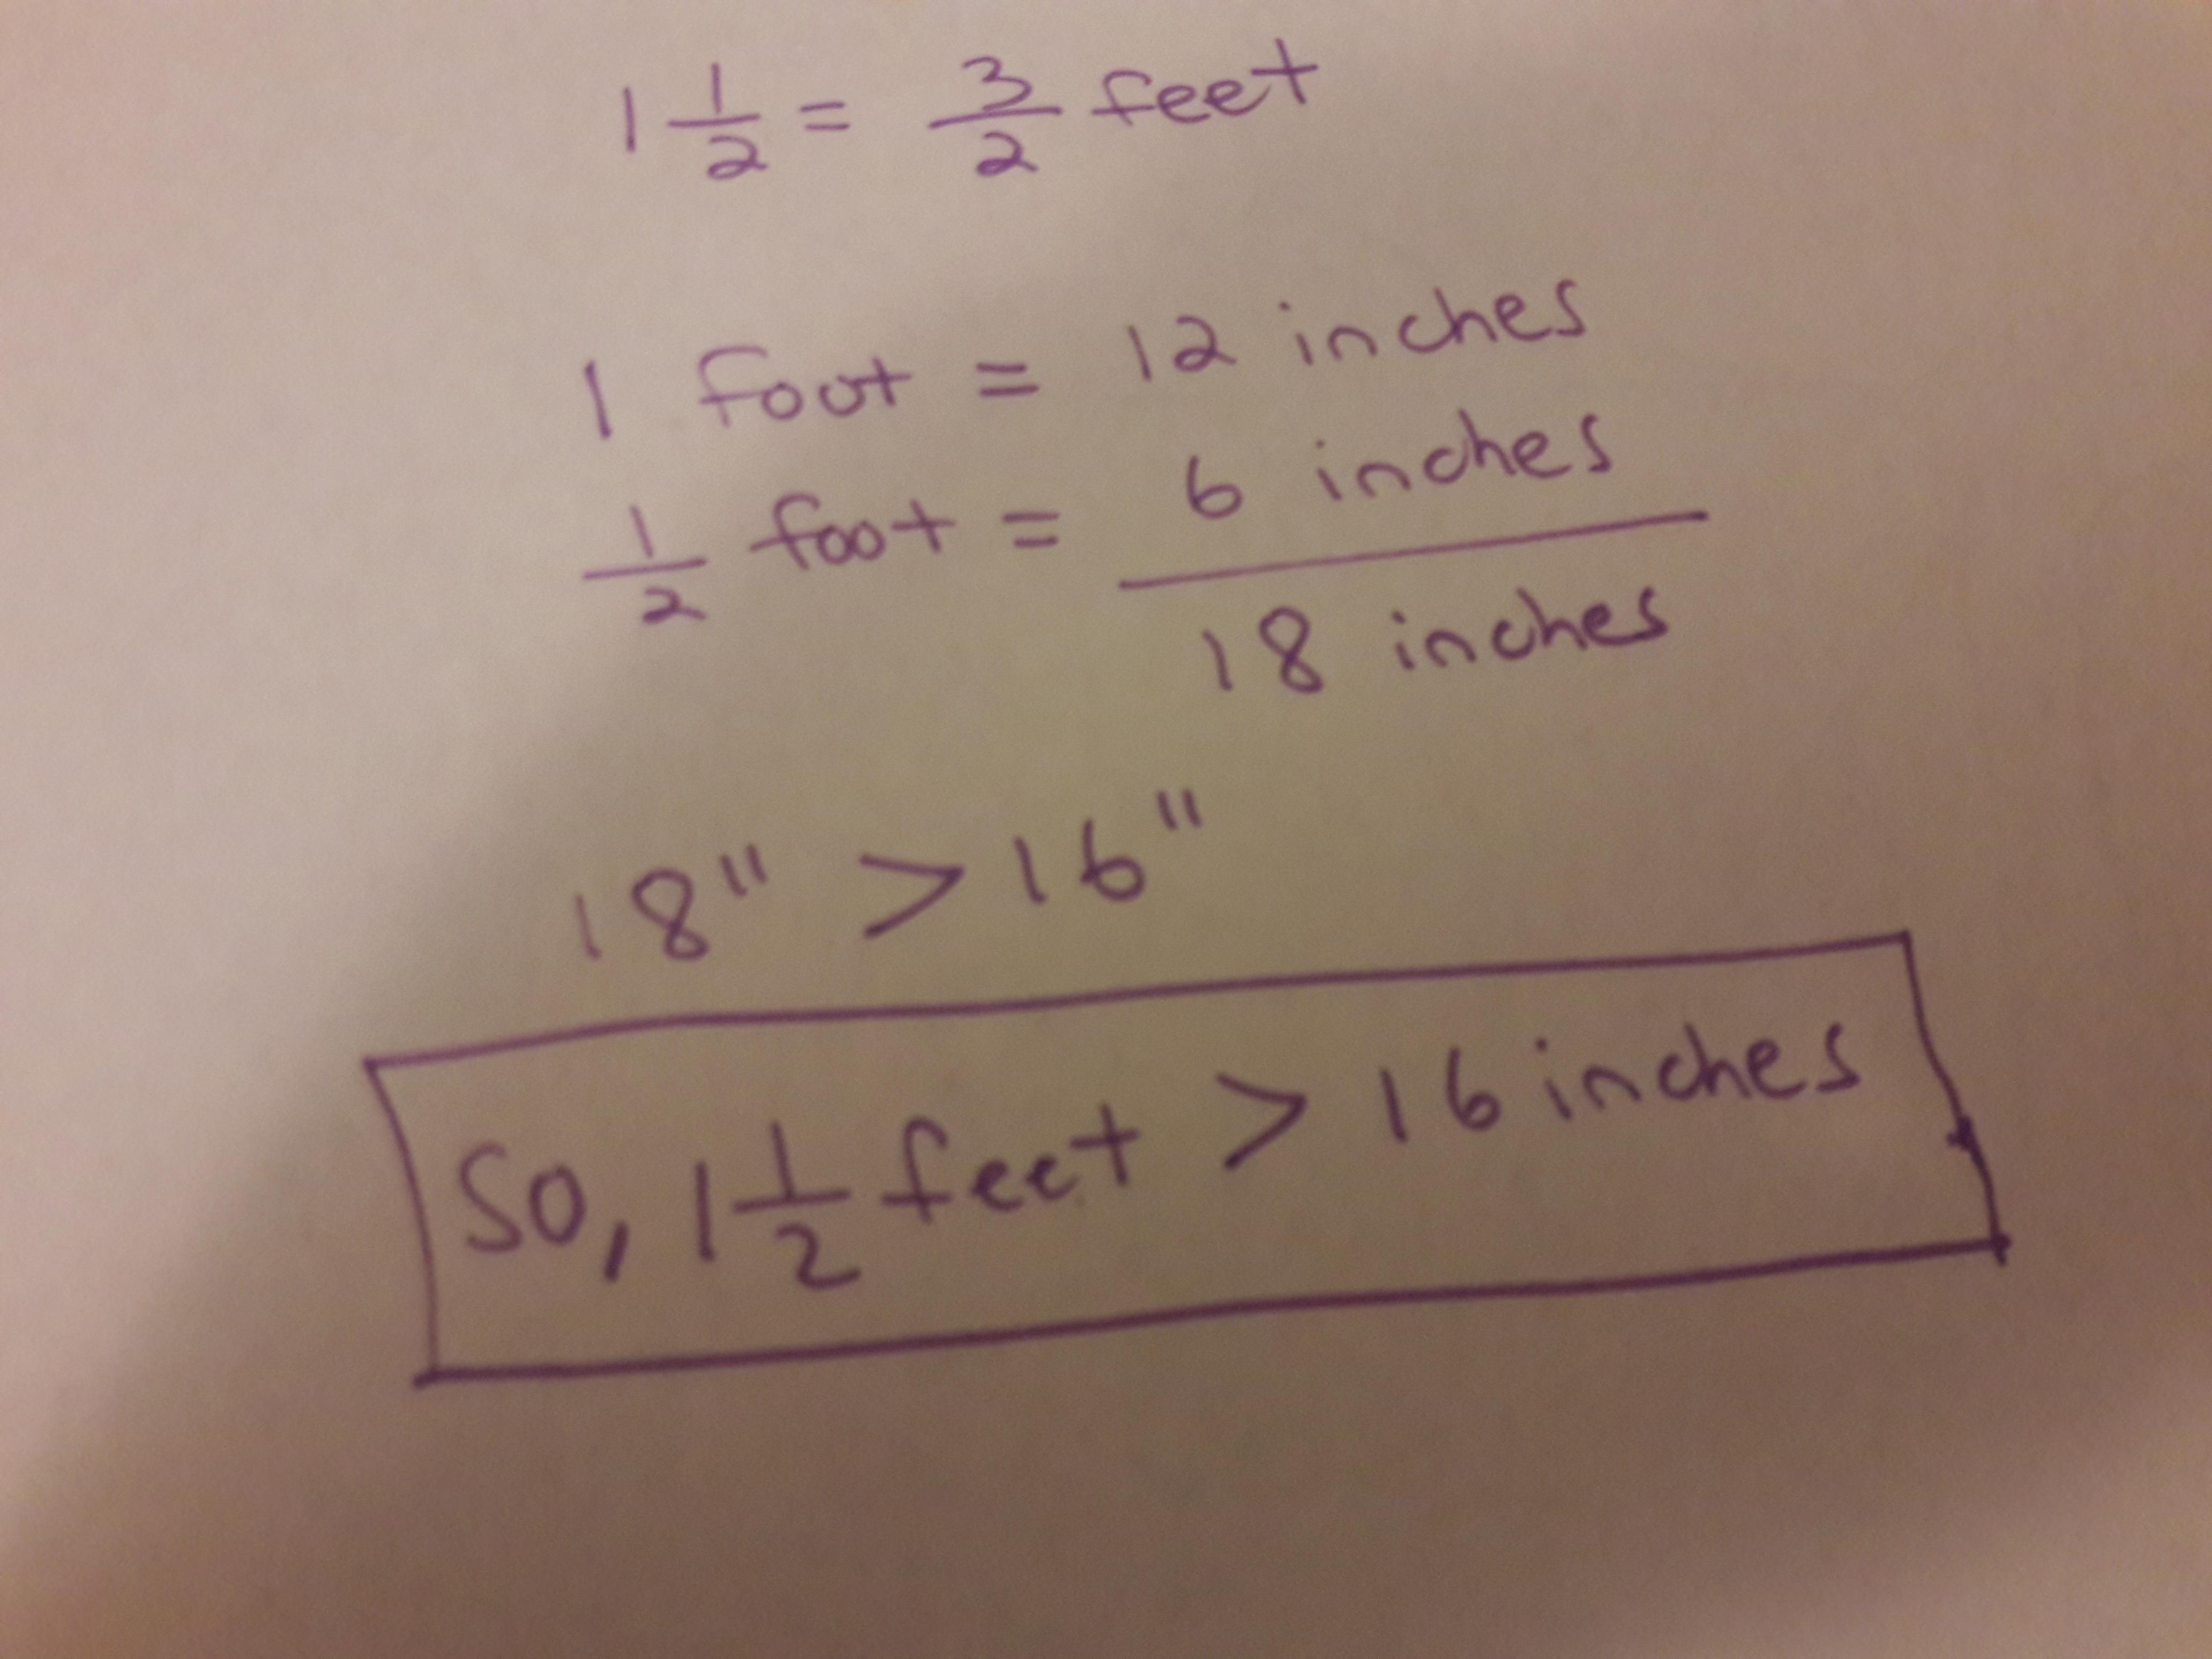 1 1/2 = 3/2 feet
1 foot = 12 inches
1/2 foot = 6 inches
18 inches
18" > 16"
So, 1 1/2 feet > 16 inches